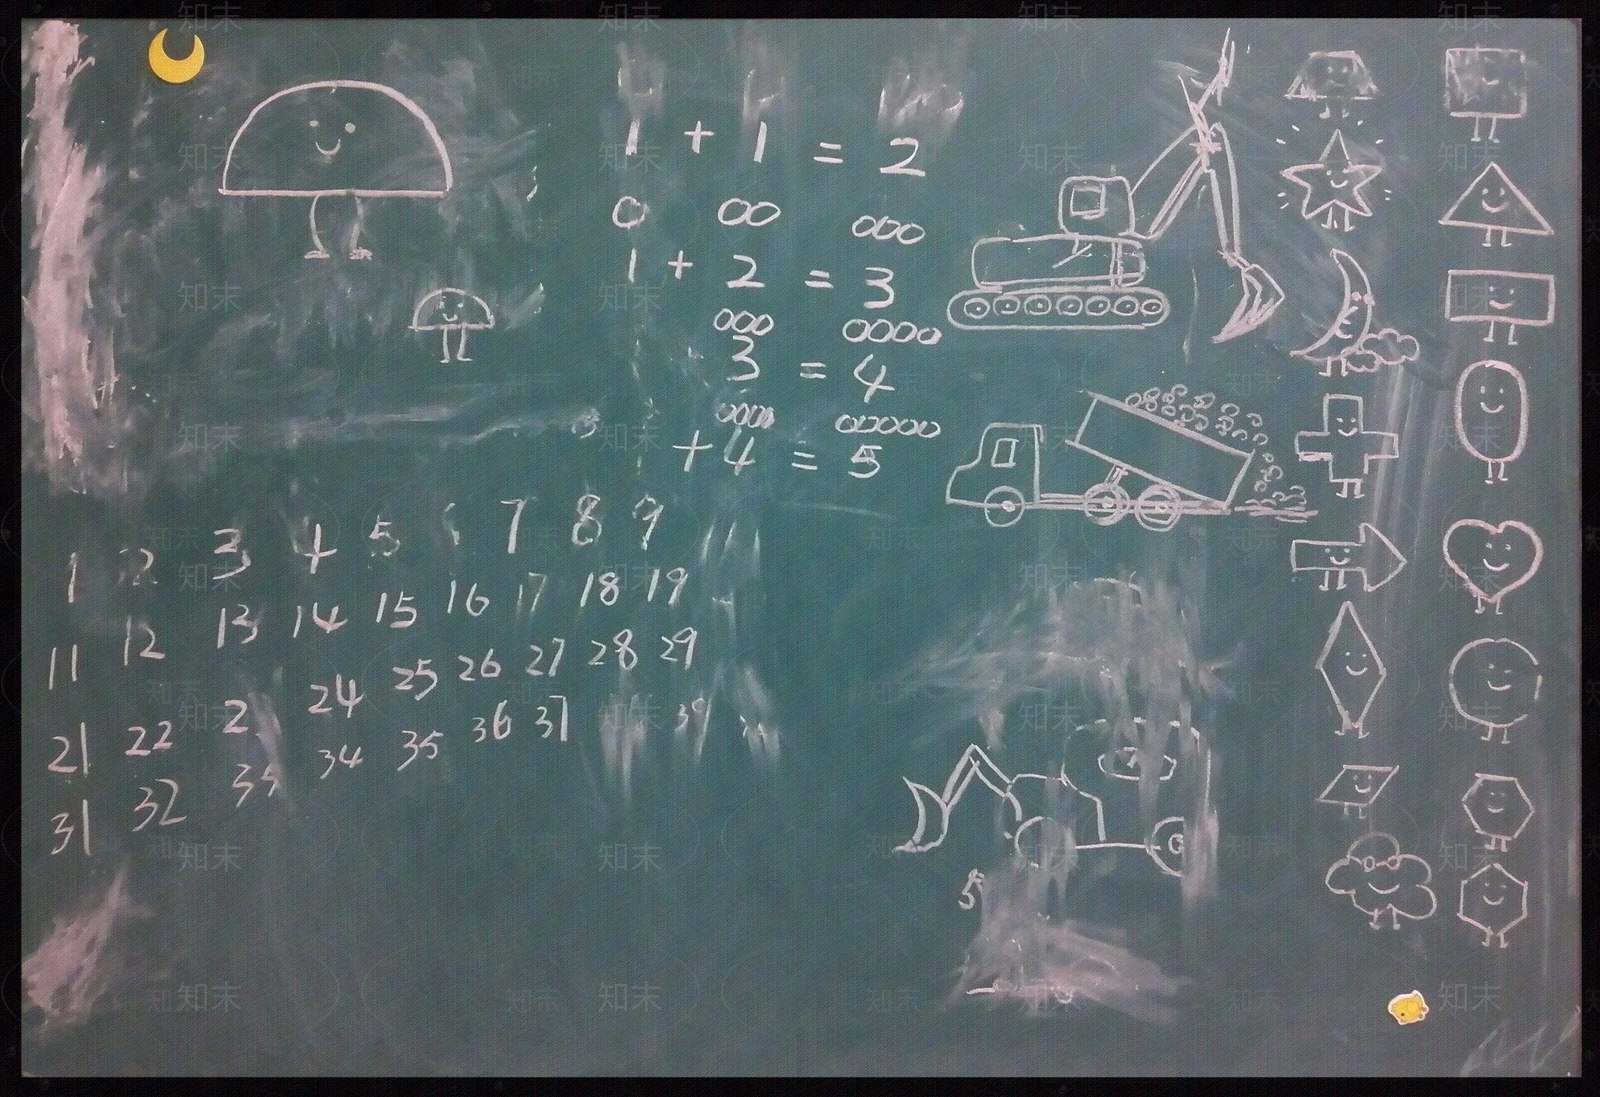 1 + 1 = 2
1 + 2 = 3
3 = 4
+ 4 = 5
1 2 3 4 5 7 8 9
11 12 13 14 15 16 17 18 19
21 22 2 24 25 26 27 28 29
31 32 33 34 35 36 37 39
5
知末